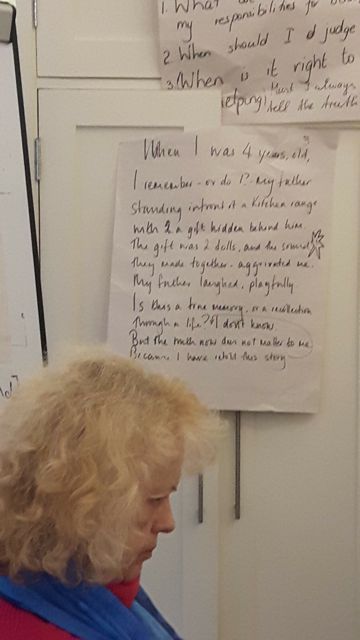 1. What
my responsibilities for
2. When should I judge
3. When is it right to
helping? Must I always
tell the truth
When I was 4 years, old,
I remember - or do I? - my father
standing infront of a kitchen range
with 2 a gift hidden behind him.
The gift was 2 dolls, and the sound
they made together - aggrivated me.
My father laughed, playfully
Is this a true memory, or a recollection
through a life? I don't know.
But the truth now does not matter to me
Because I have retold this story